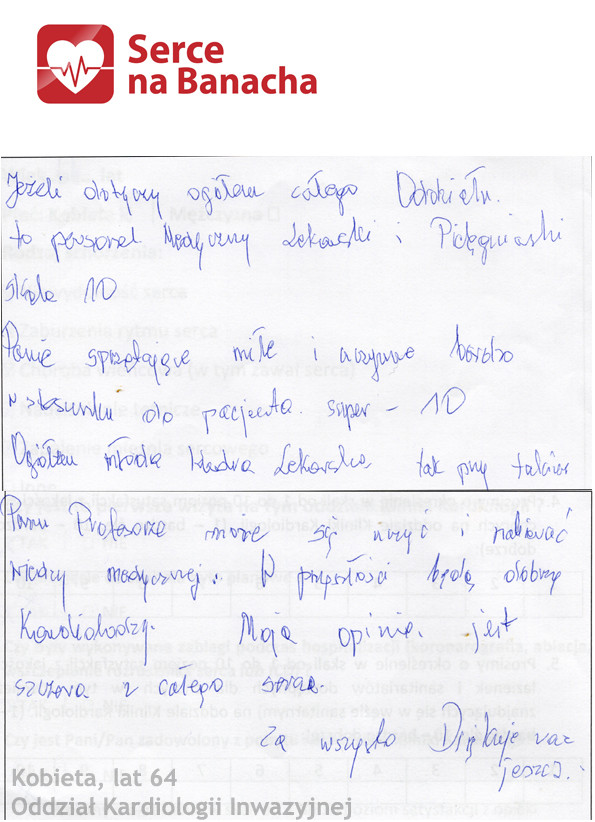 Serce
na Banacha
Jeżeli dotyczy ogółem całego Oddziału.
to personel Medyczny Lekarski i Pielęgniarski
skala 10
Panie sprzątające miłe i uczynne bardzo
w stosunku do pacjenta. super - 10
Ogółem młoda kadra Lekarska, tak przy takim
Panu Profesorze może się uczyć i nabierać
wiedzy medycznej.. W przyszłości będą dobrzy
Kardiolodzy. Moja opinia jest
szczera z całego serca.
Za wszystko Dziękuję raz
jeszcze.
Kobieta, lat 64
Oddział Kardiologii Inwazyjnej